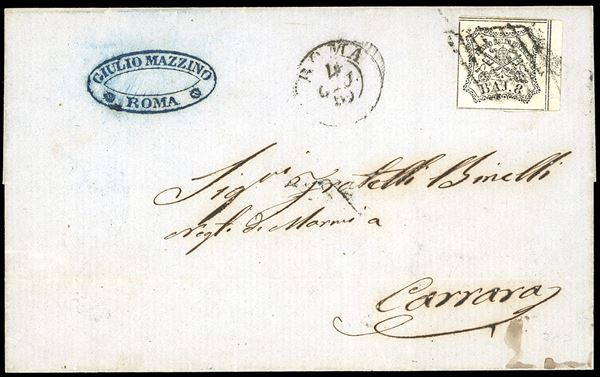 GIULIO MAZZINO
ROMA
ROMA
BAJ. 8
Sig.ri Fratelli Binelli
Negti. di Marmi a
Carrara